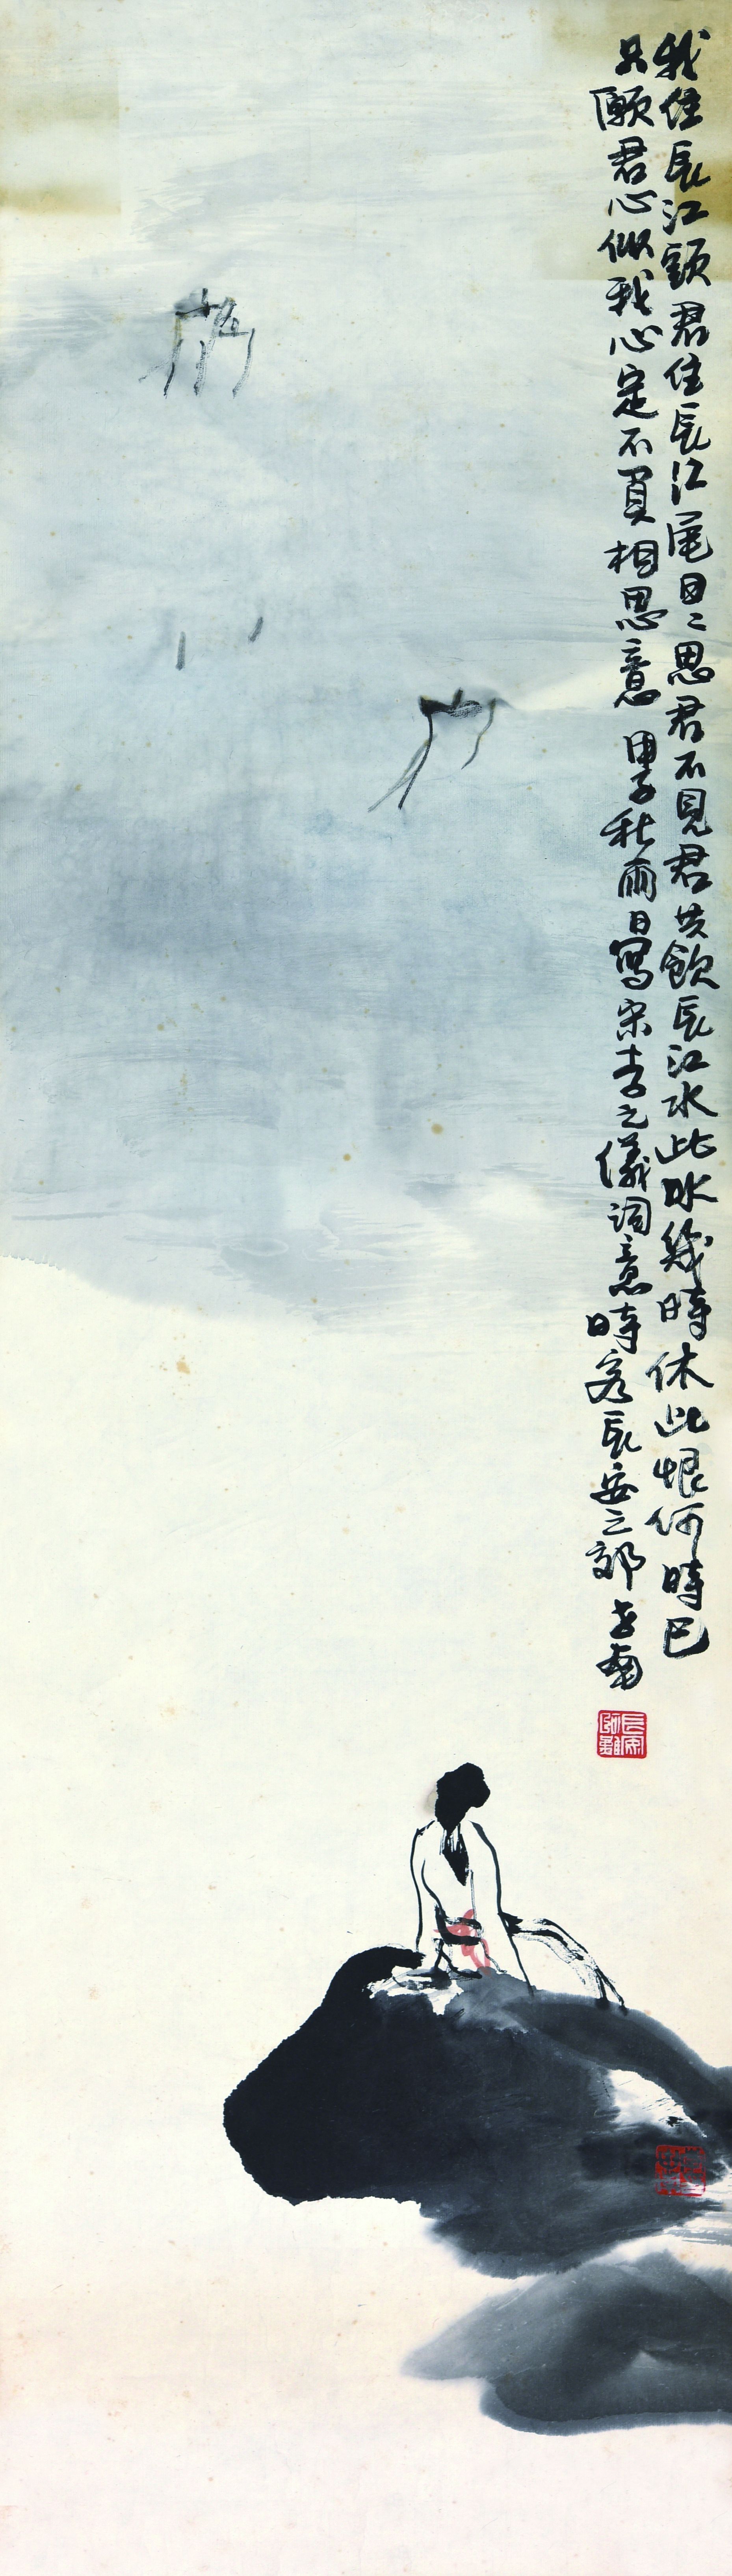 我住長江頭君住長江尾日〻思君不見君共飲長江水此水幾時休此恨何時已
只願君心似我心定不負相思意 甲子秋雨日寫宋李之儀詞意時客長安之郊老甸